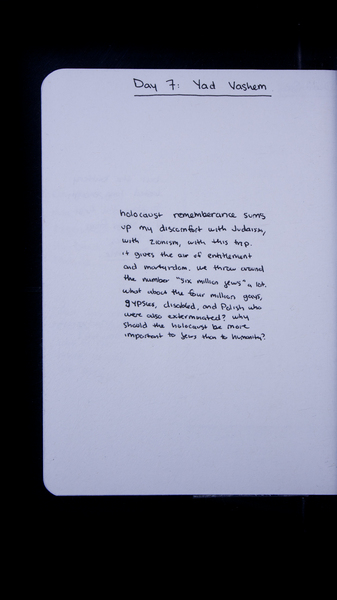 Day 7: Yad Vashem
holocaust rememberance sums
up my discomfort with Judaism,
with zionism, with this trip.
it gives the air of entitlement
and martyrdom. we throw around
the number "six million jews" a lot.
what about the four million gays,
gypsies, disabled, and Polish who
were also exterminated? why
should the holocaust be more
important to jews than to humanity?